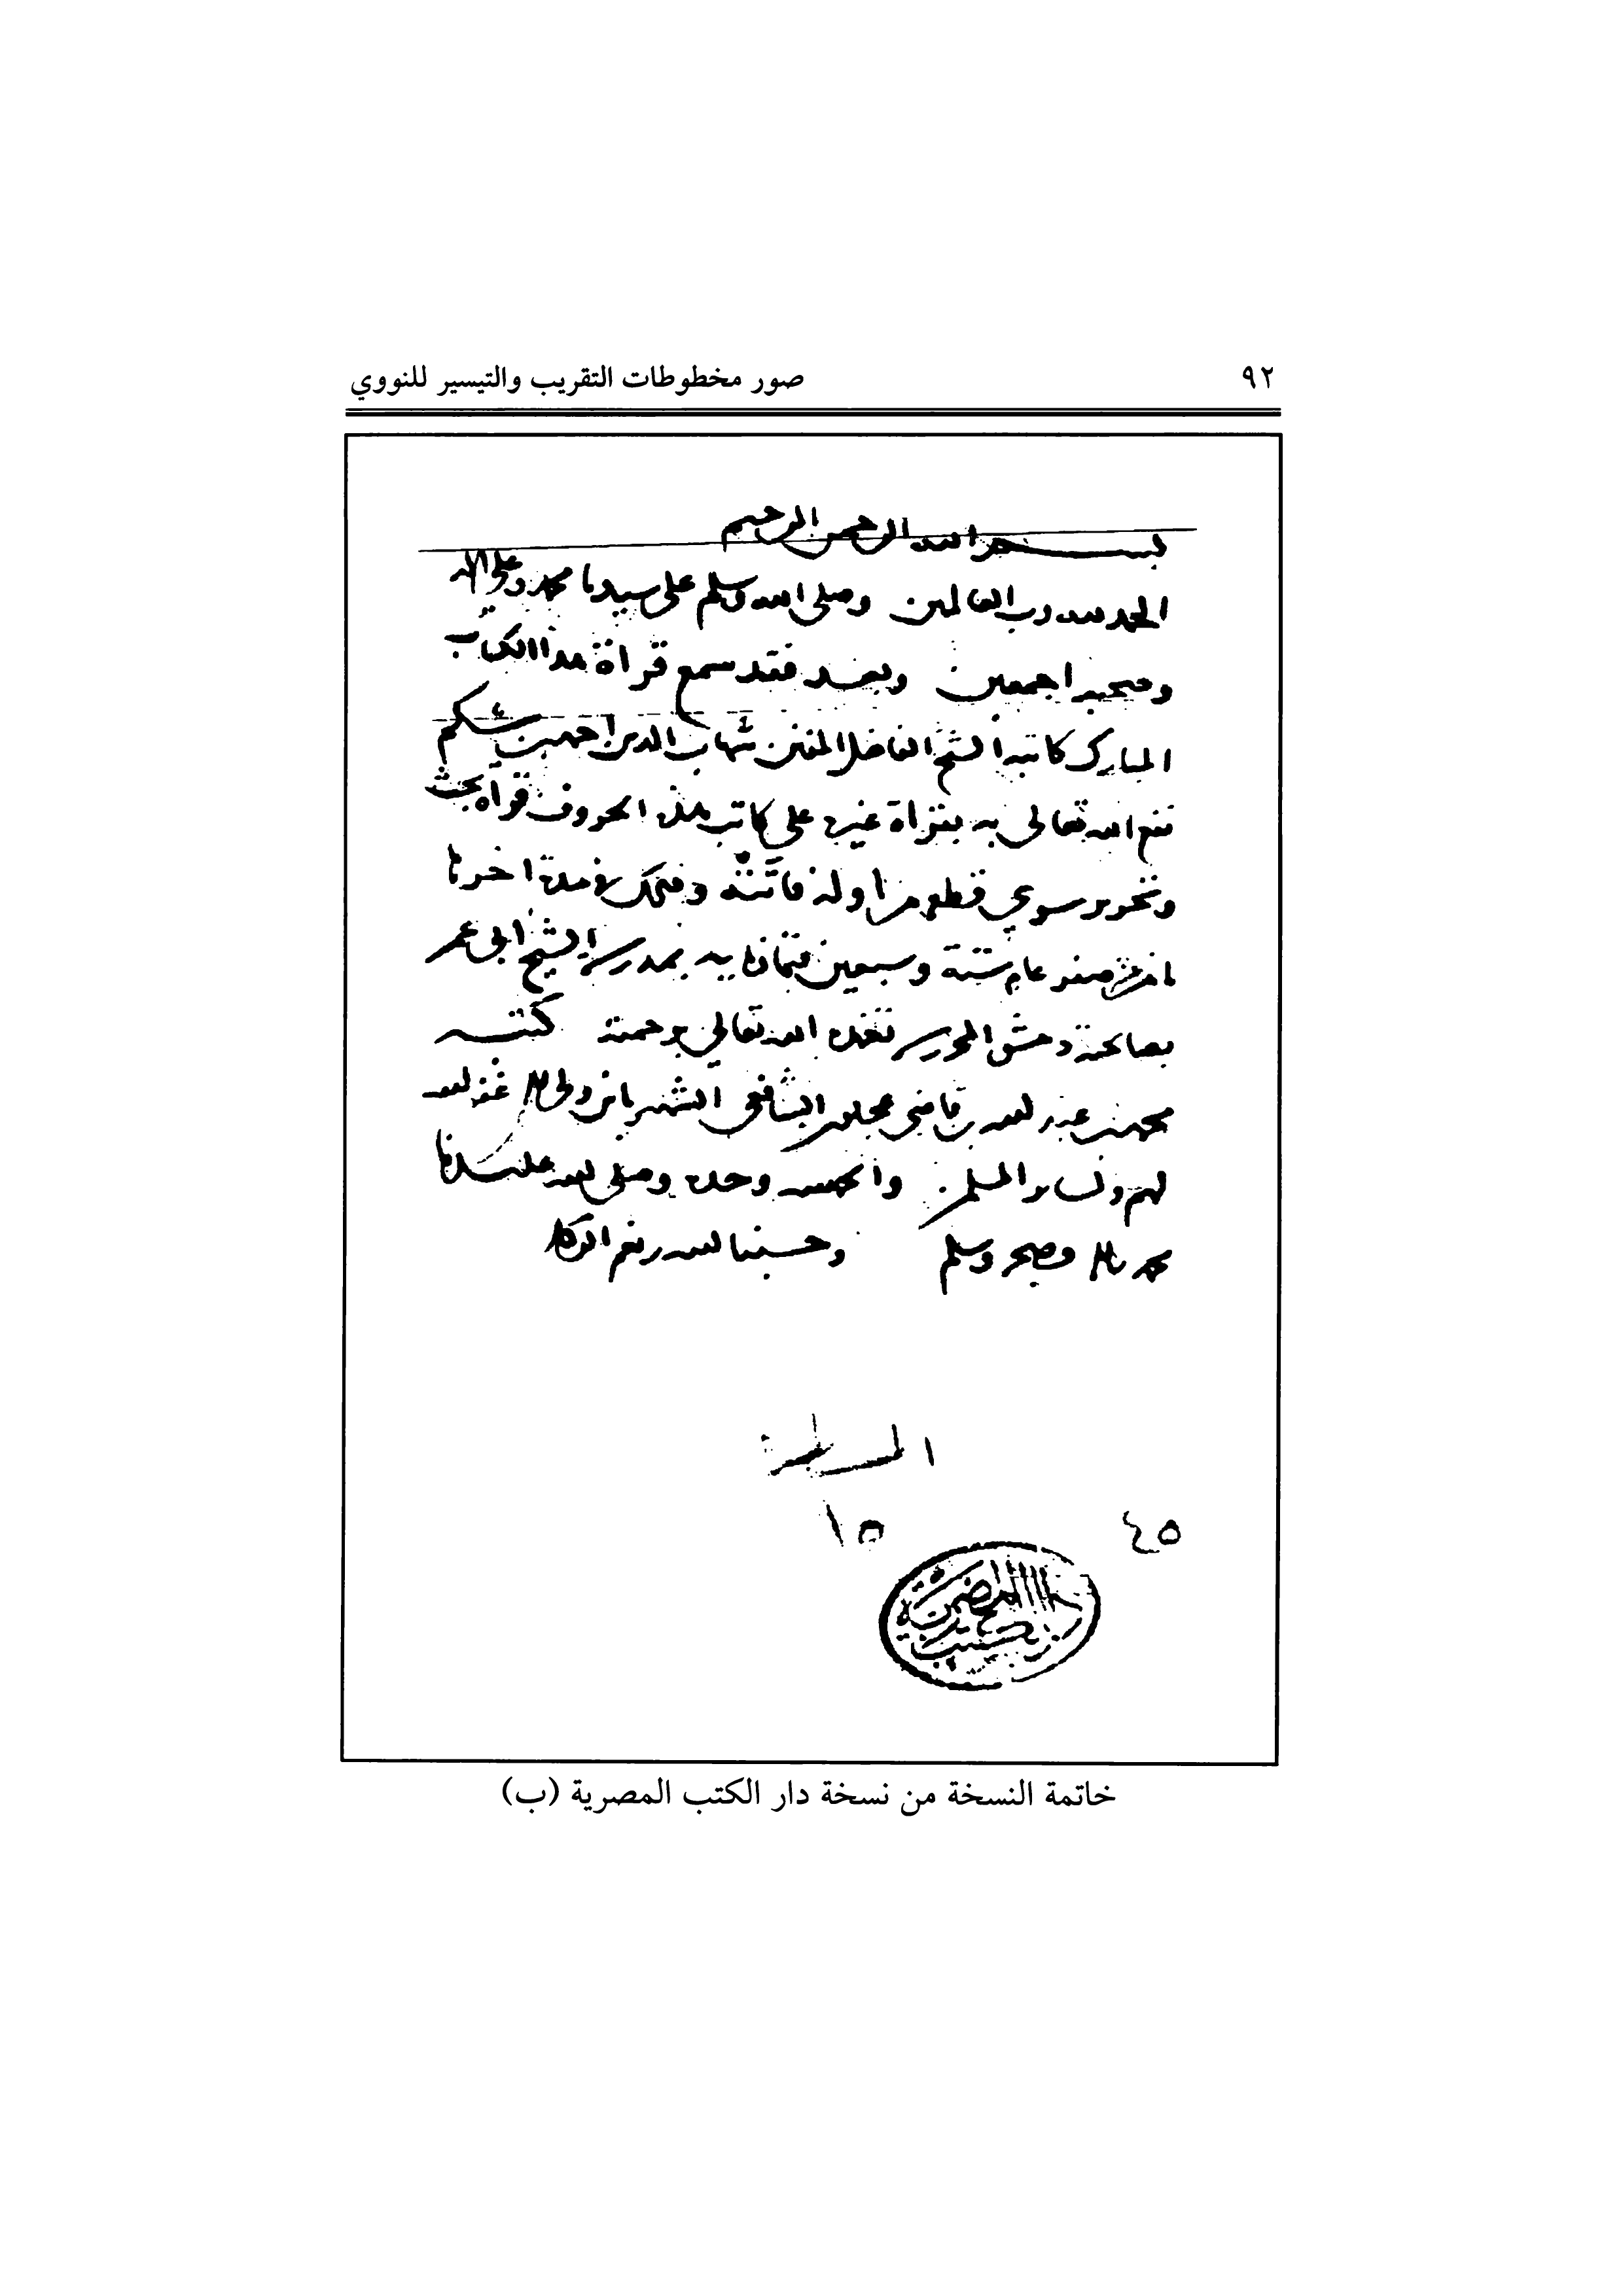 ٩٢
صور مخطوطات التقريب والتيسير للنووي
بسم الله الرحمن الرحيم
الحمد لله رب العالمين وصلى الله وسلم على سيدنا محمد وعلى اله
وصحبه اجمعين وبعد فقد سمع قراة هذا الكتاب
المبارك كاتبه الشيخ الفاضل المفنن شهاب الدين احمد بن شكم
نفع الله تعالى به بقراة غيره على كاتب هذه الحروف قراة بحث
وتحرير سوى قطعة من اوله فاتته وذلك في مدة اخرها
صفر عام ستة وسبعين وثمانمايه بمدرسة الشيخ ابي عمر
بصالحية دمشق المحروسه تغمده الله تعالى برحمته كتبه
محمد بن عبد الله بن قاضي عجلون الشافعي الشهير بابن ولي الدين غفر الله
لهم ولساير المسلمين والحمد لله وحده وصلى الله على سيدنا
محمد واله وصحبه وسلم وحسبنا الله ونعم الوكيل
٤٥
١٥
خاتمة النسخة من نسخة دار الكتب المصرية (ب)